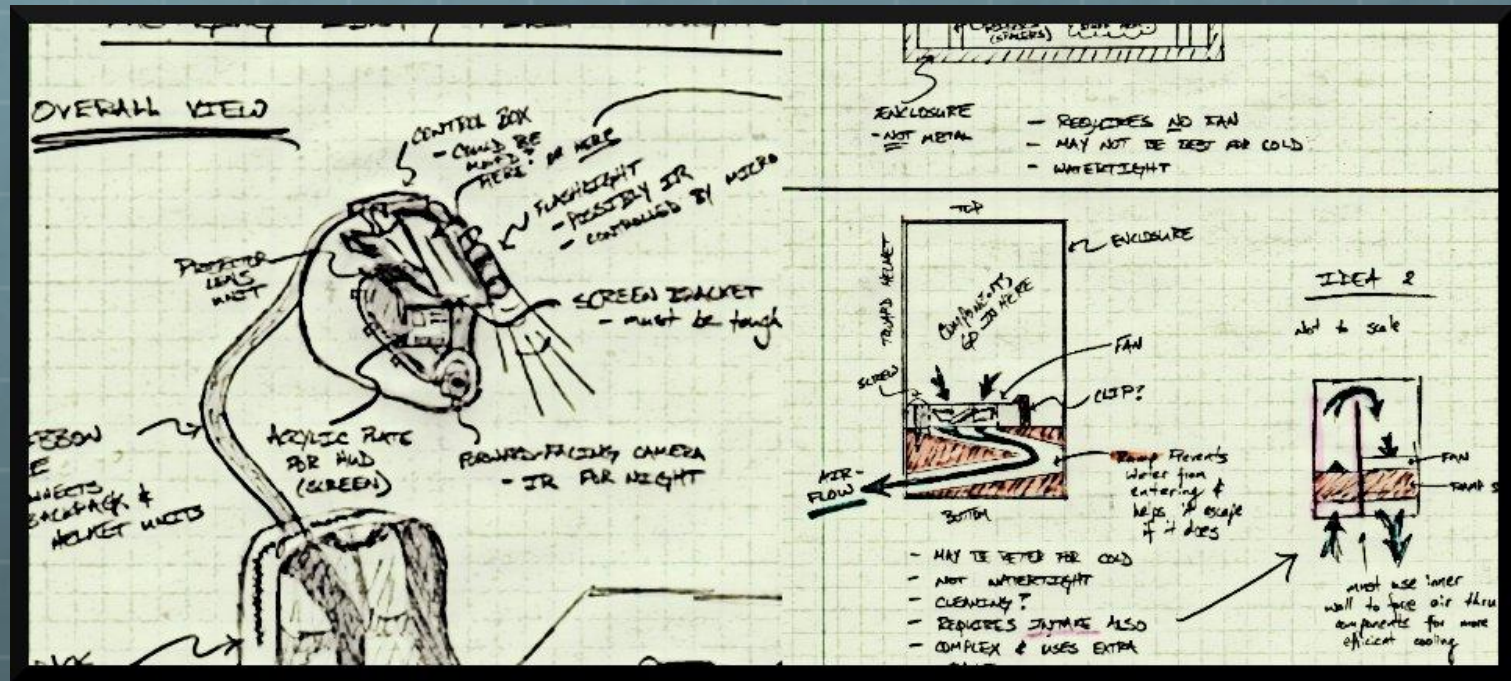 OVERALL VIEW
CONTROL BOX
- COULD BE
HERE? OR HERE
FLASHLIGHT
- POSSIBLY IR
- CONTROLLED BY MICRO
PROJECTOR
LENS
UNIT
SCREEN BRACKET
- must be tough
ACRYLIC PLATE
FOR HUD
(SCREEN)
FORWARD-FACING CAMERA
- IR FOR NIGHT
BACKPACK &
HELMET UNITS
(SPACERS)
ENCLOSURE
- NOT METAL
- REQUIRES NO FAN
- MAY NOT BE BEST FOR COLD
- WATERTIGHT
TOP
TOWARD HELMET
ENCLOSURE
COMPONENTS
GO IN HERE
FAN
SCREW
CLIP?
AIR-
FLOW
Ramp Prevents
water from
entering &
helps it escape
if it does
BOTTOM
- MAY BE BETER FOR COLD
- NOT WATERTIGHT
- CLEANING?
- REQUIRES INTAKE ALSO
- COMPLEX & USES EXTRA
IDEA 2
Not to scale
FAN
RAMP S
must use inner
wall to force air thru
components for more
efficient cooling